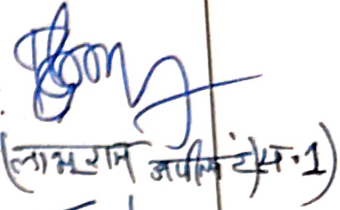 (लाभू राम अपीलांट सं. 1)